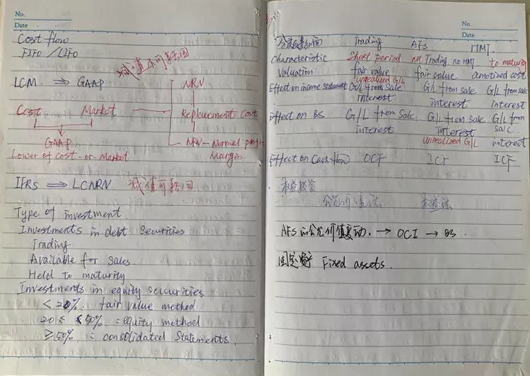 No.
Date
Cost flow
FIFO / LIFO
减值可转回
LCM ⇒ GAAP
NRV
Cost Market
Replacement cost
GAAP
NRV - Normal profit
Margin
Lower of cost or Market
IFRS ⇒ LCNRV 减值可转回
Type of investment
Investments in debt securities
Trading
Available for sales
Held to maturity
Investments in equity securities
< 20% fair value method
20% ≤ 50% : equity method
≥ 50% : consolidated statements
No.
Date
Trading AFS HTM
Characteristic short period not Trading no HTM to maturity
Valuation fair value fair value amortized cost
unrealized G/L
Effect on income statement G/L from Sale G/L from Sale G/L from
interest interest Interest
Effect on BS G/L from Sale G/L from Sale G/L from Sale
Interest Interest interest
unrealized G/L
Effect on Cash flow OCF ICF ICF
AFS 公允价值变动 → OCI → BS.
固定资产 Fixed assets.